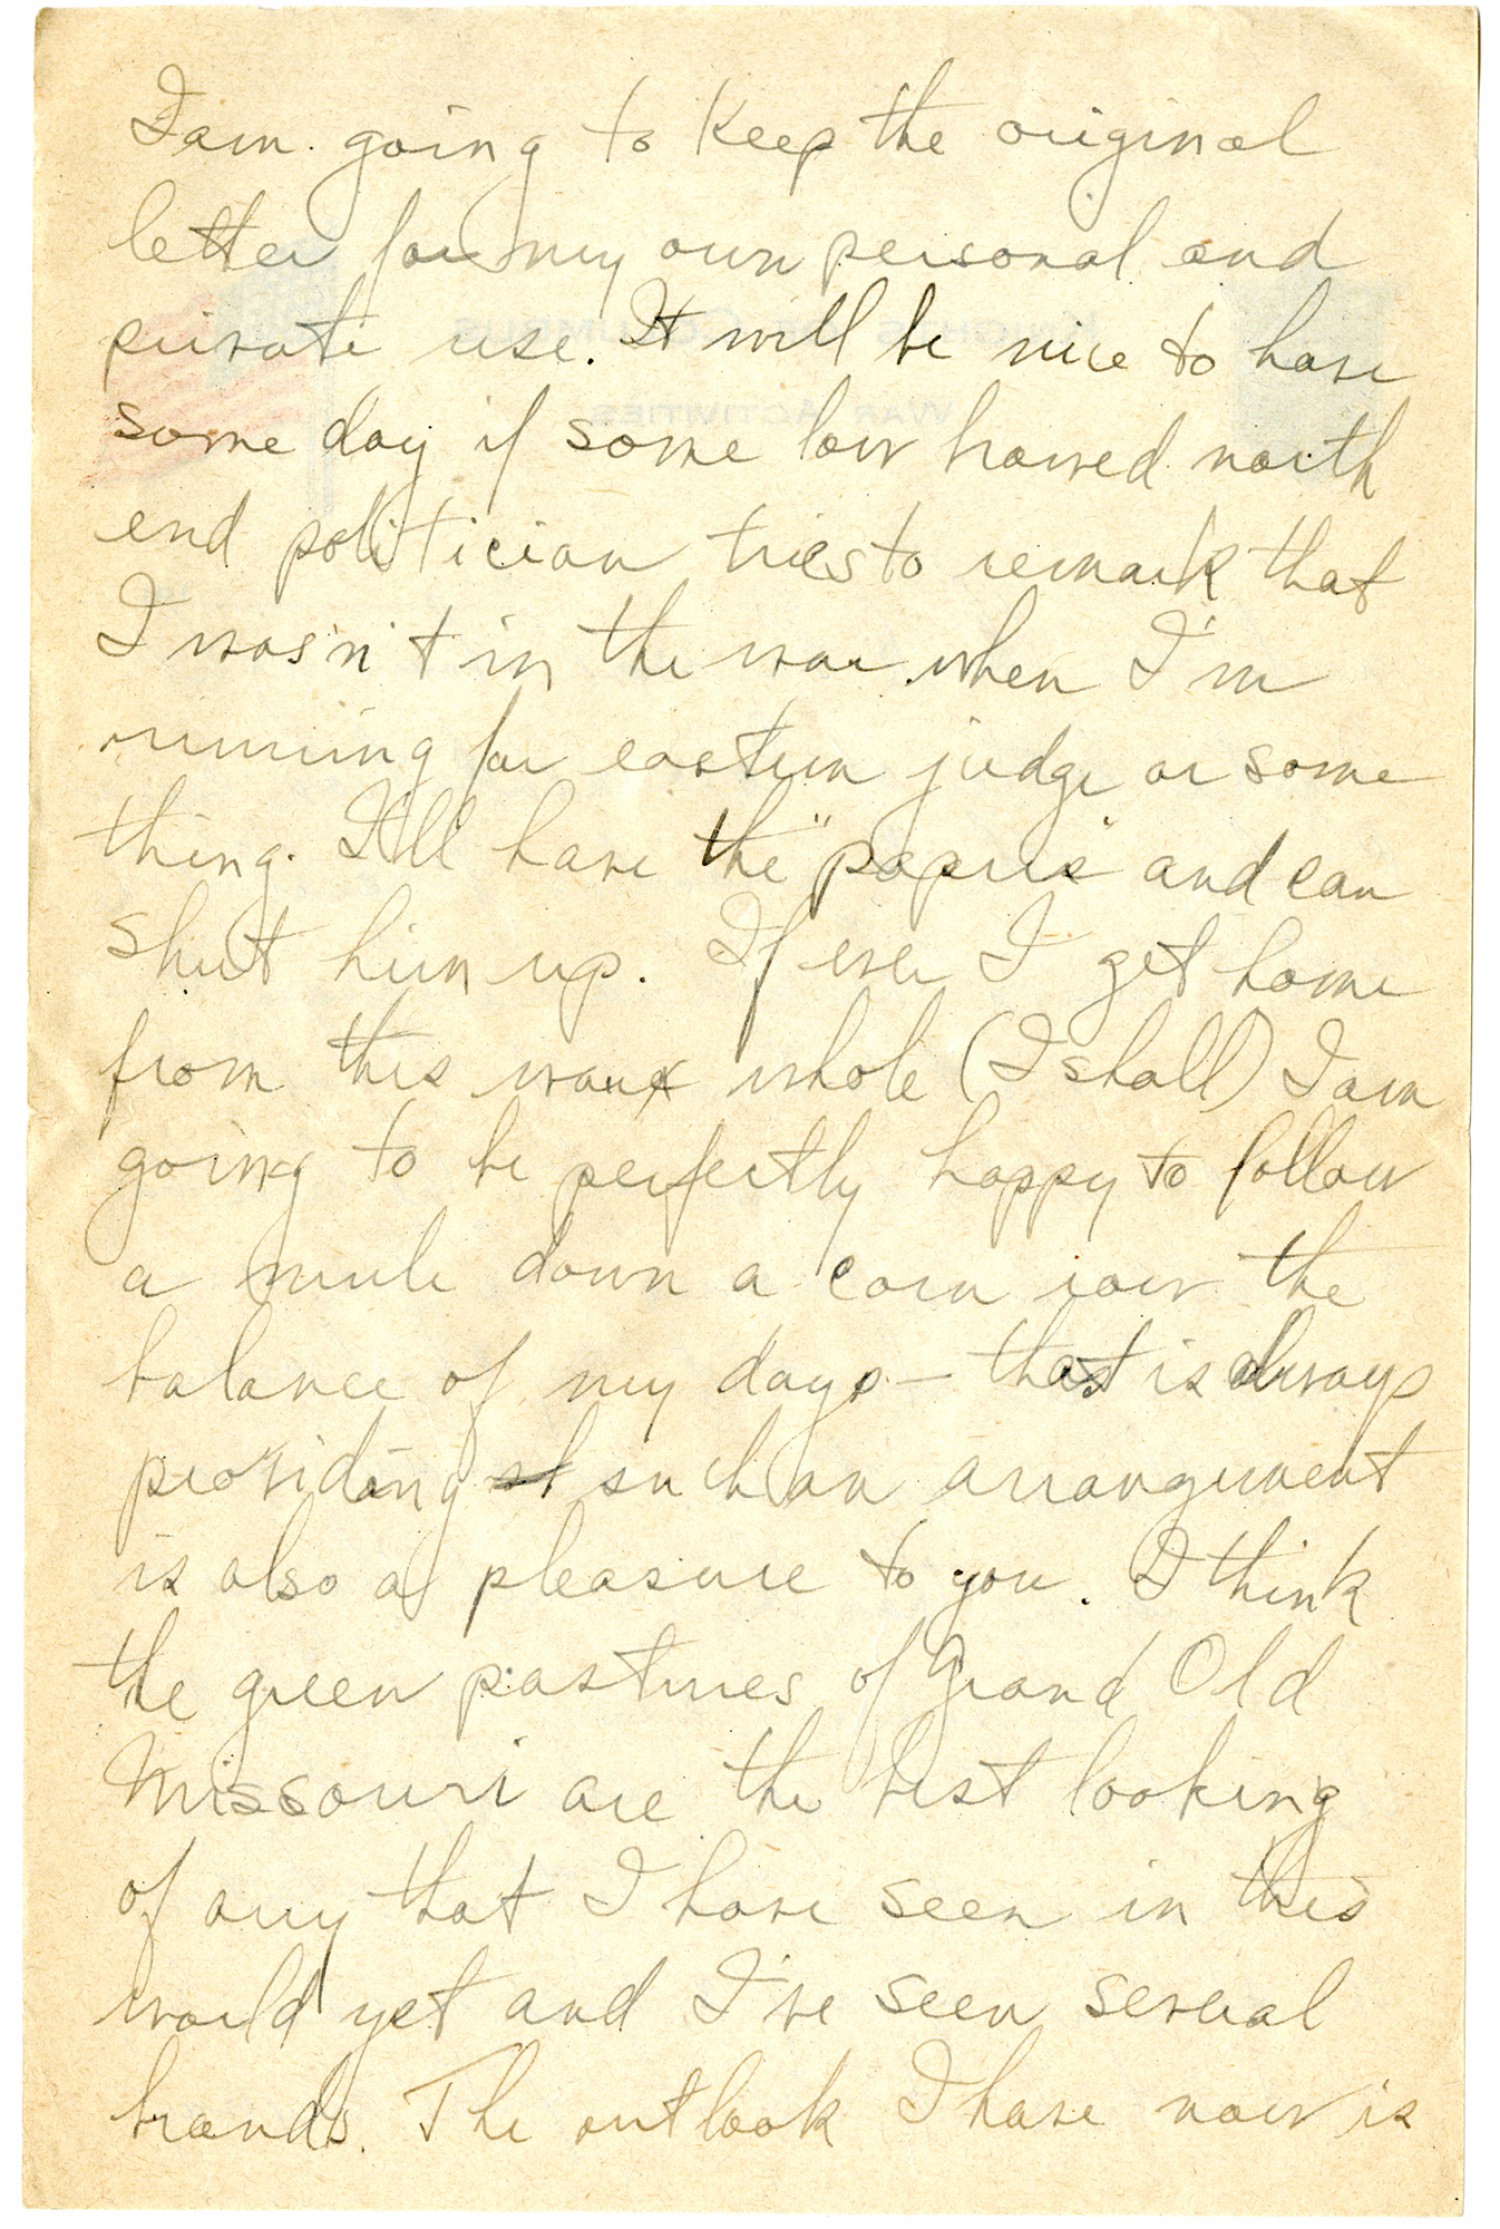 I am going to keep the original
letter for my own personal and
private use. It will be nice to have
some day if some low browed north
end politician tries to remark that
I wasn't in the war when I'm
running for eastern judge or some
thing. I'll have the "papers" and can
shut him up. If ever I get home
from this war whole (I shall) I am
going to be perfectly happy to follow
a mule down a corn row the
balance of my days — that is always
providing such an arrangement
is also a pleasure to you. I think
the green pastures of Grand Old
Missouri are the best looking
of any that I have seen in this
world yet and I've seen several
brands. The outlook I have now is